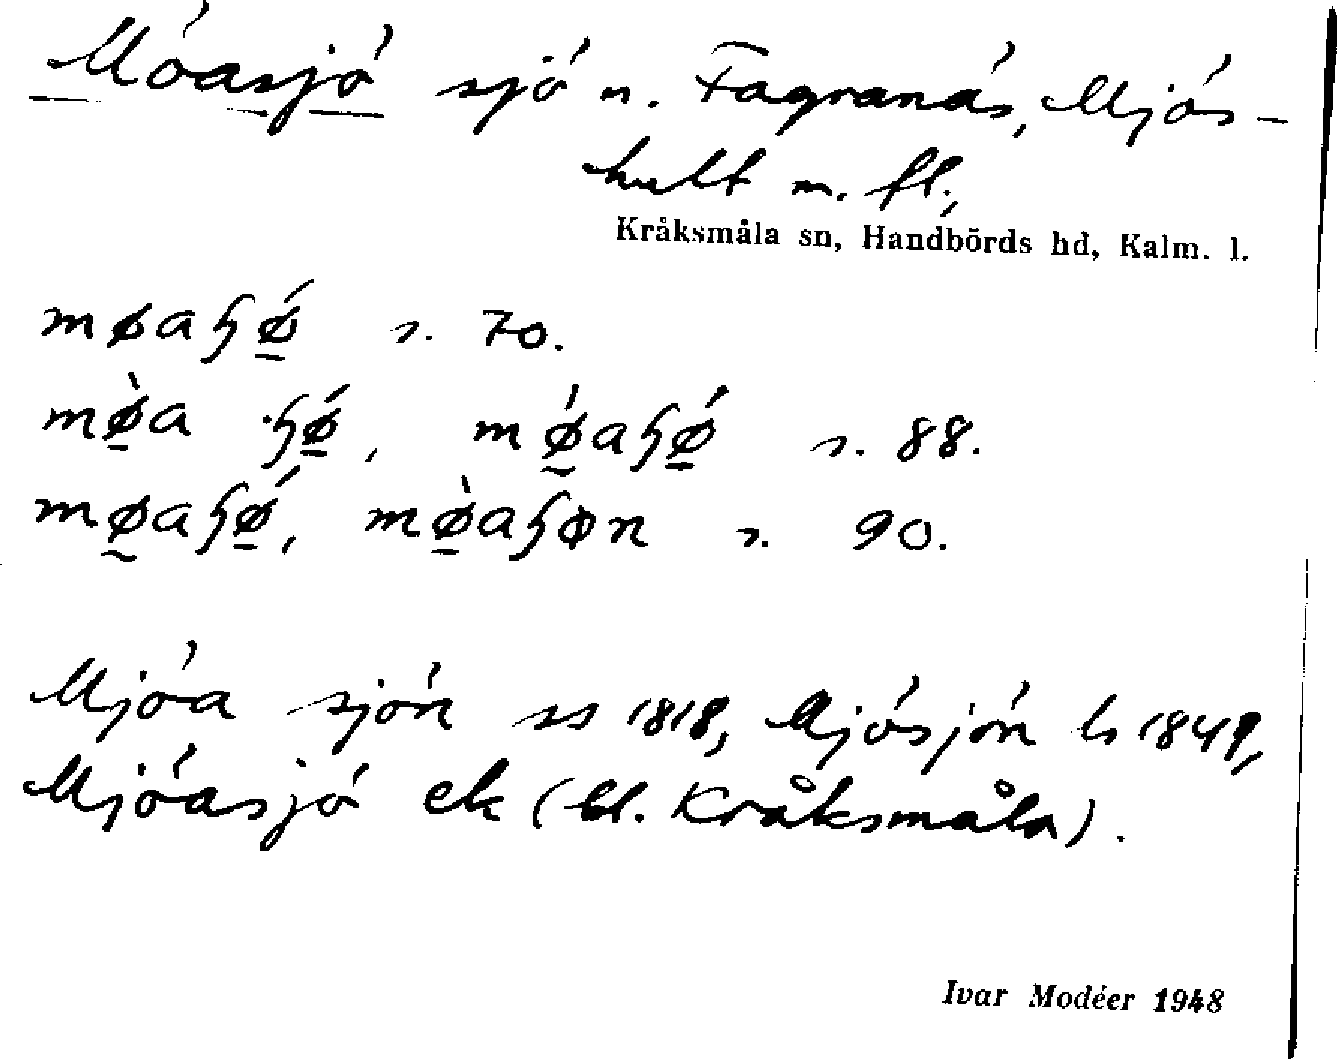 Móasjó sjó n. Fagranás, Mjós-
hult m. fl.,
Kråksmåla sn, Handbörds hd, Kalm. l.
møaɧǿ̠ s. 70.
mø̠̀a ·ɧǿ̠, mǿ̰aɧǿ̠ s. 88.
mø̰aɧǿ̠, mø̠̀aɧɵn s. 90.
Mjóa sjón ss 1818, Mjósjón ls 1849,
Mjóasjó ek (bl. Kråksmåla).
Ivar Modéer 1948